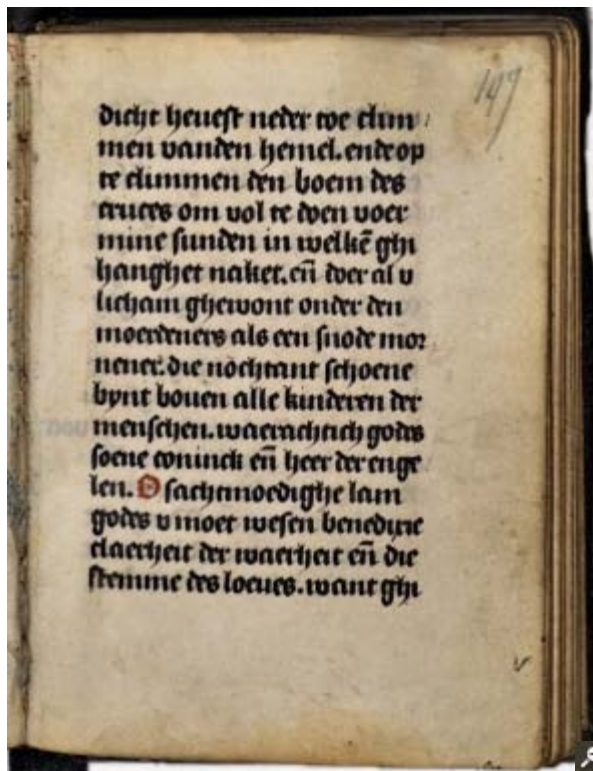 149
dicht heuest neder toe clim
men vanden hemel. ende op
te climmen den boem des
cruces om vol te doen voer
mine sunden in welkē ghi
hanghet naket. eñ doer al v
licham ghewont onder den
moerdeners als een snode mor
nener. die nochtant schoene
bynt bouen alle kinderen der
menschen. waerachtich godes
soene coninck eñ heer der enge
len. O sachtmoedighe lam
godes v moet wesen benedixie
claerheit der waerheit eñ die
stemme des loeues. want ghi